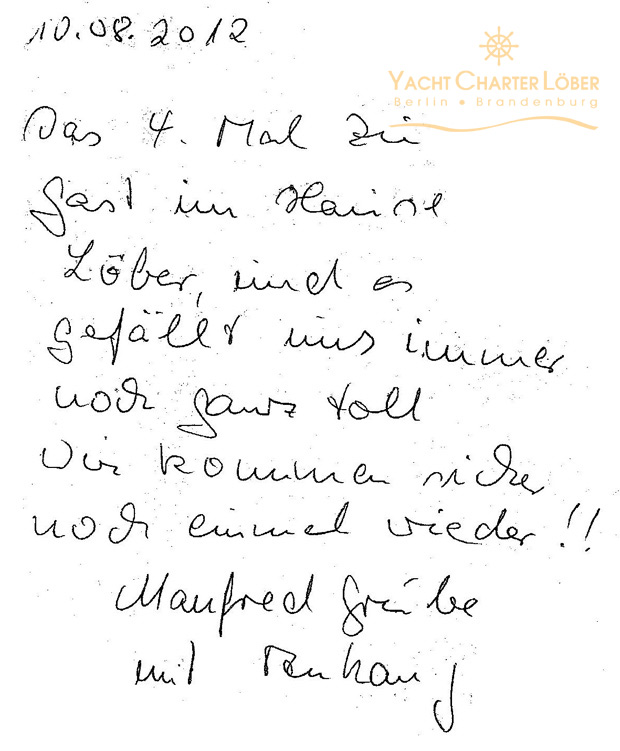 10.08.2012
YACHT CHARTER LÖBER
Berlin • Brandenburg
Das 4. Mal zu
Gast im Hause
Löber, und es
gefällt uns immer
noch ganz toll
Wir kommen sicher
noch einmal wieder!!
Manfred Grube
mit Anhang